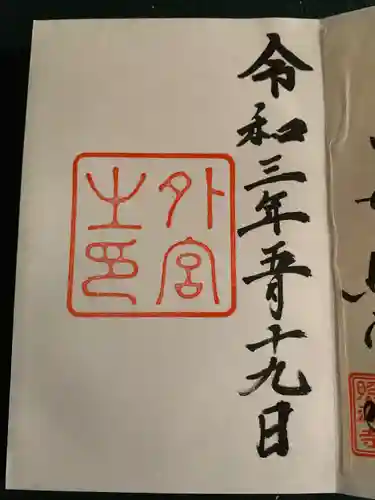 令和三年五月十九日
外宮
之印